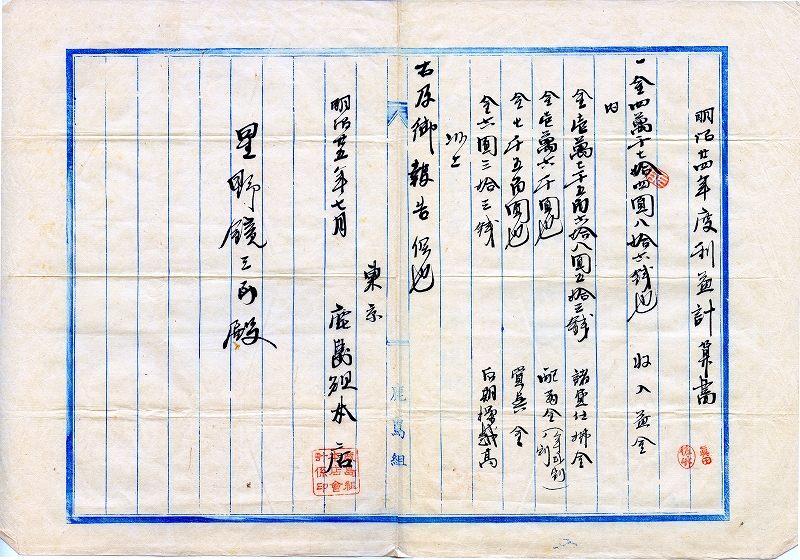 明治廿四年度利益計算書
一金四萬千七拾四圓八拾六銭也 收入益金
内
金壱萬七千五百六拾八圓五拾三銭 諸貸仕拂金
金壱萬六千圓也 配當金
金七千五百圓也 賞與金
金六圓三拾三銭 后期操越高
以上
右及御報告候也
明治廿五年七月
東京 鹿島組本店
星野鏡三郎殿
鹿島組
眞田
鹿島組本店會計係印